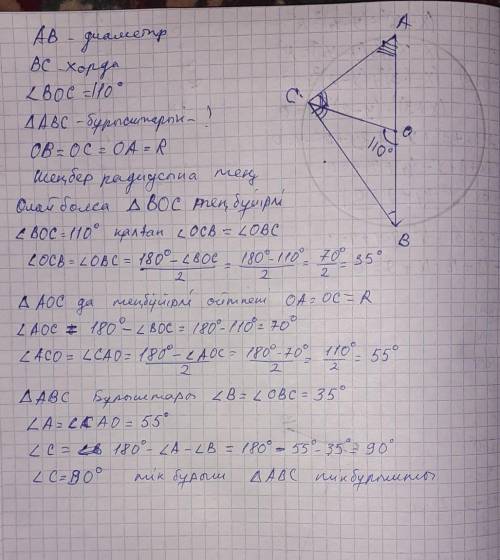 AB - диаметр
BC - хорда
∠BOC = 110°
△ABC - бұрыштарын - ?
OB = OC = OA = R
Шеңбер радиусына тең
Олай болса △BOC теңбүйірлі
∠BOC = 110° қалған ∠OCB = ∠OBC
∠OCB = ∠OBC = (180° - ∠BOC)/2 = (180° - 110°)/2 = 70°/2 = 35°
△AOC да теңбүйірлі өйткені OA = OC = R
∠AOC = 180° - ∠BOC = 180° - 110° = 70°
∠ACO = ∠CAO = (180° - ∠AOC)/2 = (180° - 70°)/2 = 110°/2 = 55°
△ABC Бұрыштары ∠B = ∠OBC = 35°
∠A = ∠CAO = 55°
∠C = 180° - ∠A - ∠B = 180° - 55° - 35° = 90°
∠C = 90° тік бұрыш △ABC тікбұрышты
A
C
O
110°
B